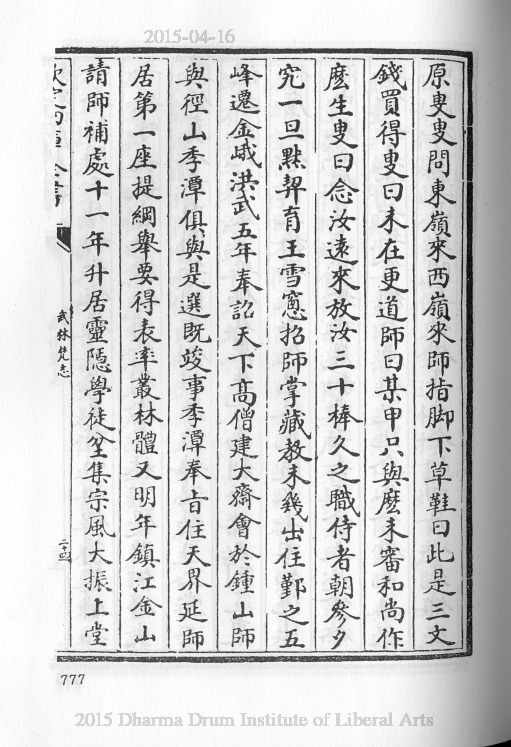 2015-04-16
原叟叟問東嶺來西嶺來師指脚下草鞋曰此是三文
錢買得叟曰未在更道師曰某甲只與麽未審和尚作
麽生叟曰念汝遠來放汝三十棒久之職侍者朝參夕
究一旦點契育王雪窻招師掌藏教未幾出住鄞之五
峰遷金峨洪武五年奉詔天下高僧建大齋會於鍾山師
與徑山季潭俱與是選既竣事季潭奉旨住天界延師
居第一座提綱舉要得表率叢林體又明年鎮江金山
請師補處十一年升居靈隱學徒坌集宗風大振上堂
欽定四庫全書
武林梵志
二十四
777
2015 Dharma Drum Institute of Liberal Arts